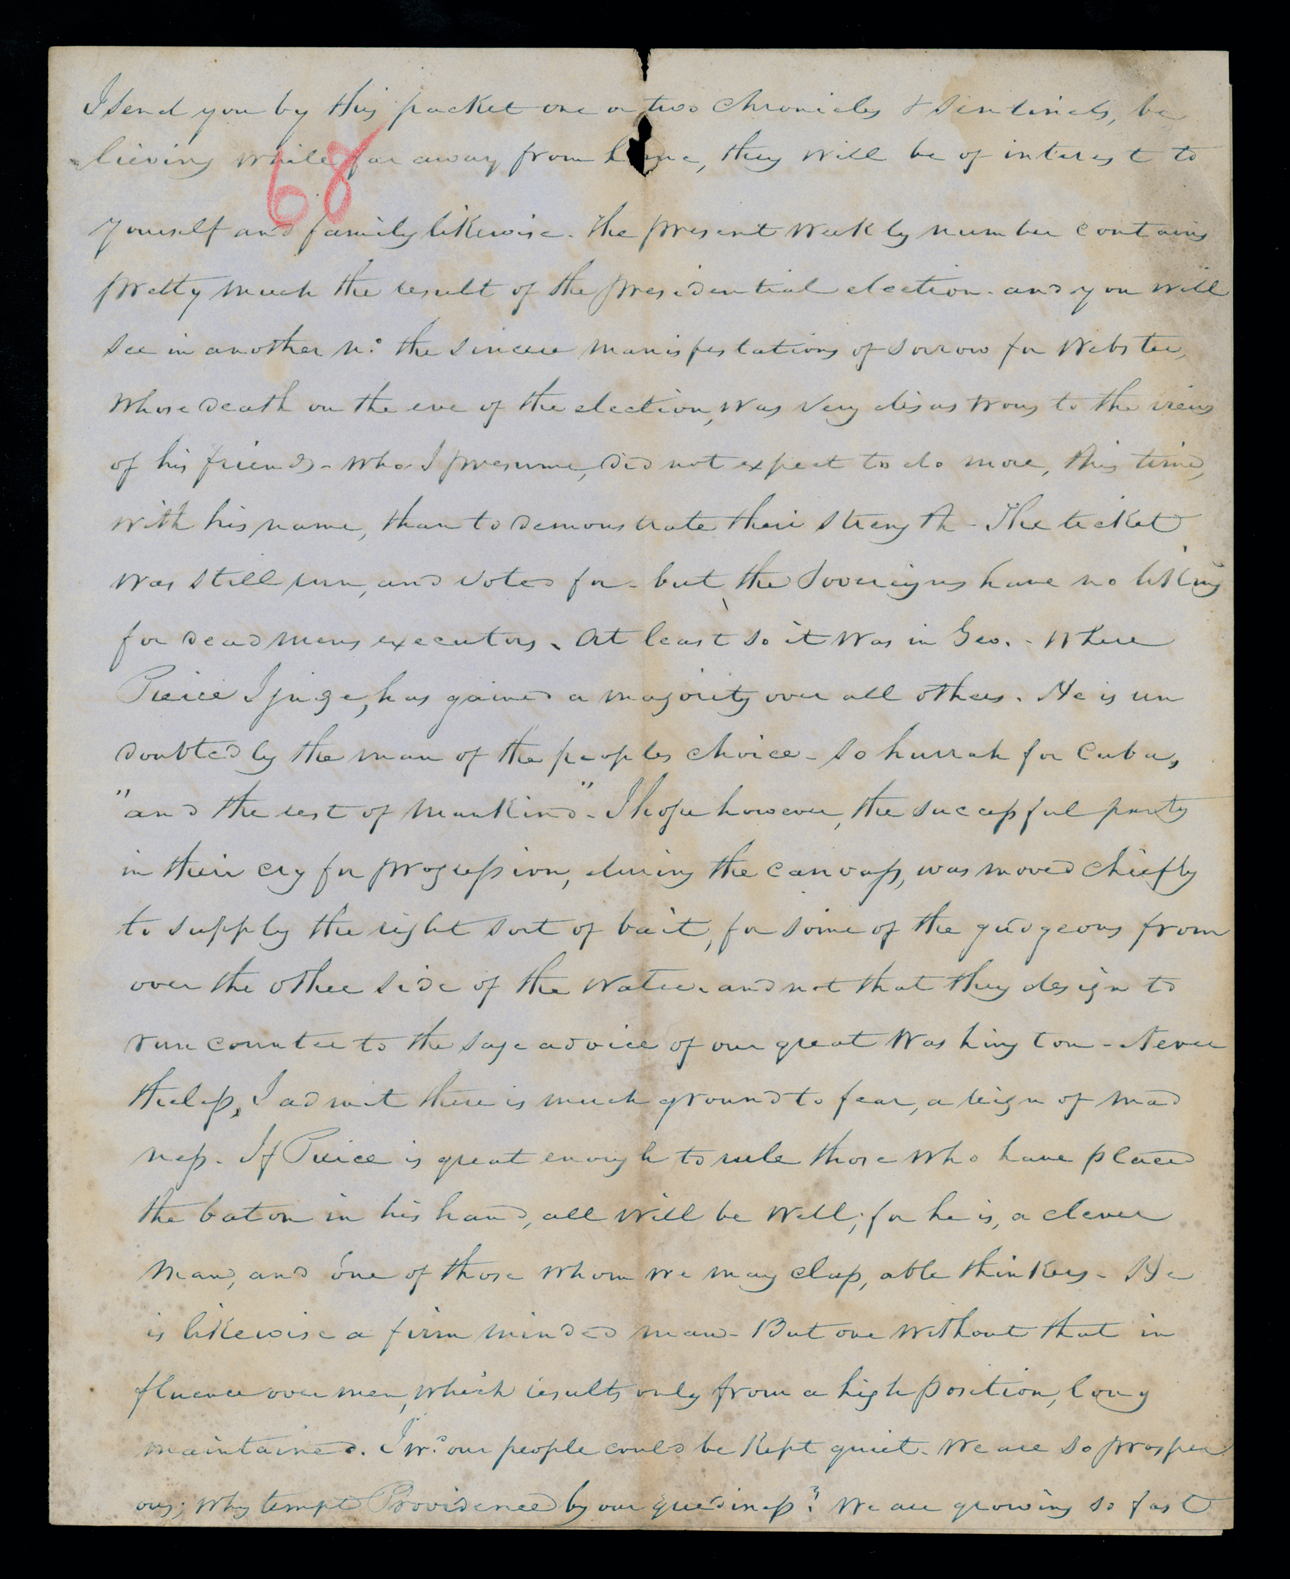 I send you by this packet one or two Chronicles & Sintinels, be
lieving while far away from home, they will be of interest to
68
yourself and family likewise. The present weekly number contains
pretty much the result of the presidential election. and you will
see in another no. the sincere manisfestations of sorrow for Webster,
whose death on the eve of the election, was very disastrous to the views
of his friends - who I presume, did not expect to do more, this time,
with his name, than to demonstrate their strength - The ticket
was still run, and voted for - but the Sovereigns have no liking
for dead mens executors. At least so it was in Geo. - Where
Pierce I judge, has gained a majority over all others. He is un
doubtedly the man of the peoples choice - so hurrah for Cuba,
"and the rest of mankind". I hope however, the successful party
in their cry for progression, during the canvass, was moved chiefly
to supply the right sort of bait, for some of the gudgeons from
over the other side of the water. and not that they design to
run counter to the sage advice of our great Washington - Never
theless, I admit there is much ground to fear, a reign of mad
ness. If Pierce is great enough to rule those who have placed
the baton in his hand, all will be well; for he is, a clever
man, and one of those whom we may class, able thinkers. He
is likewise a firm minded man - But one without that in
fluence over men, which results only from a high position, long
maintained. I wd. our people could be kept quiet. We are so prosper
ous; why tempt Providence by our greediness? We are growing so fast